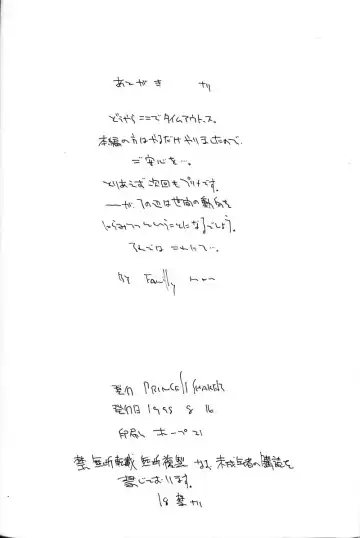 あとがき
どうやらここでタイムアウトス。
本編の方はやるだけやりましたので、
ご安心を…。
とりあえず次回もプリですー。
が、その辺は世間の動向を
にらみつつということになるでしょう。
それでは これにて…。
By Family
発行 PRINCESS MAKER
発行日 1995 8 16
印刷 ホープ21
禁 無断転載 無断複製 なお、未成年者の購読を
禁じております。
18禁